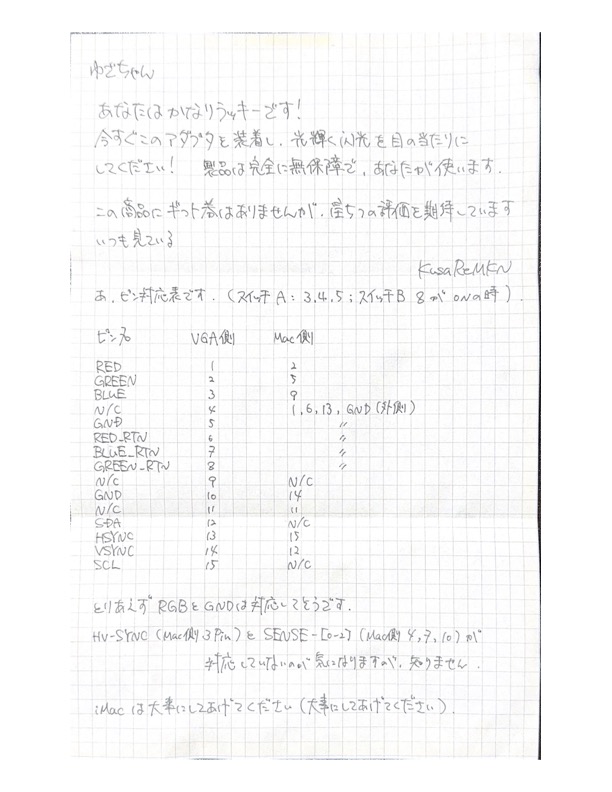 ゆざちゃん
あなたはかなりラッキーです!
今すぐこのアダプタを装着し、光輝く閃光を目の当たりに
してください! 製品は完全に無保障で、あなたが使います.
この商品にギフト券はありませんが、星5つの評価を期待しています
いつも見ている
KusaReMKN
あ、ピン対応表です. (スイッチA: 3.4.5; スイッチB 8がONの時).
ピン名 VGA側 Mac側
RED 1 2
GREEN 2 5
BLUE 3 9
N/C 4 1,6,13, GND (外側)
GND 5 〃
RED_RTN 6 〃
BLUE_RTN 7 〃
GREEN_RTN 8 〃
N/C 9 N/C
GND 10 14
N/C 11 11
SDA 12 N/C
HSYNC 13 15
VSYNC 14 12
SCL 15 N/C
とりあえず RGBとGNDは対応してそうです.
HV-SYNC (Mac側3Pin) と SENSE-[0-2] (Mac側 4,7,10) が
対応していないのが気になりますが、知りません.
iMac は大事にしてあげてください (大事にしてあげてください).